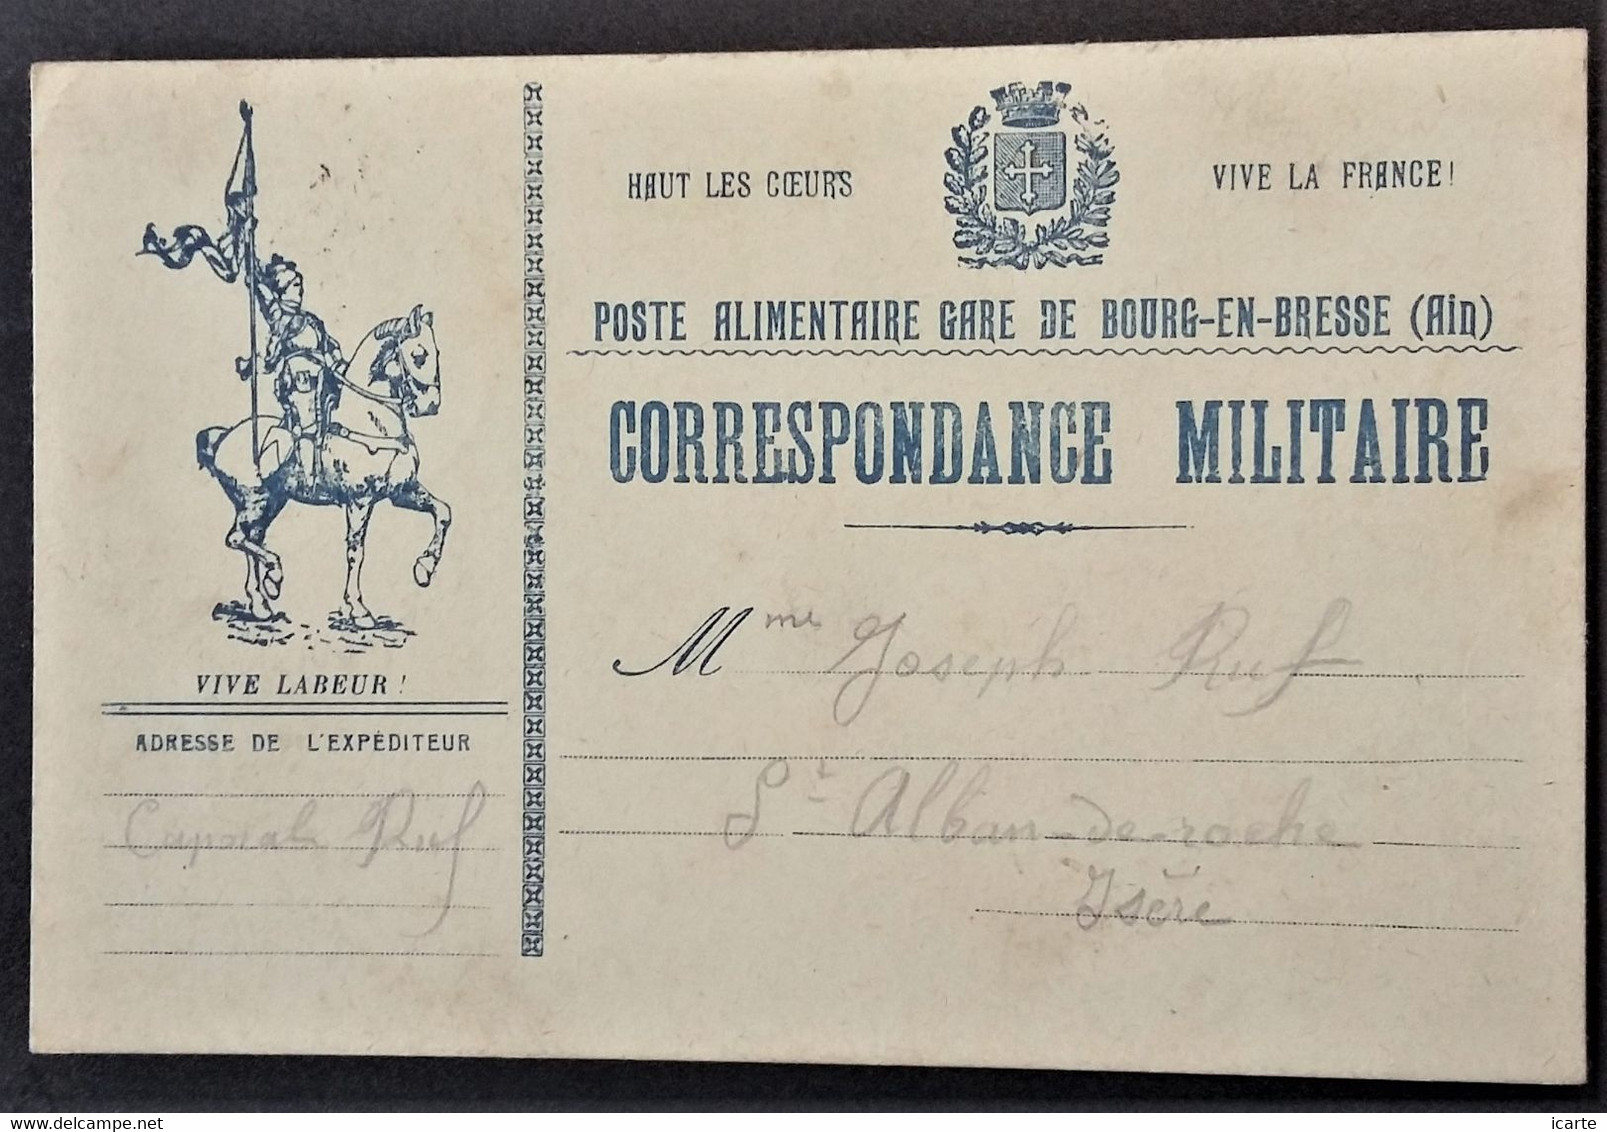 HAUT LES CŒURS
VIVE LA FRANCE!
POSTE ALIMENTAIRE GARE DE BOURG-EN-BRESSE (Ain)
CORRESPONDANCE MILITAIRE
Mme Joseph Ruf
St Alban-de-roche
Isère
VIVE LABEUR!
ADRESSE DE L'EXPÉDITEUR
Ruf
www.delcampe.net
icarte